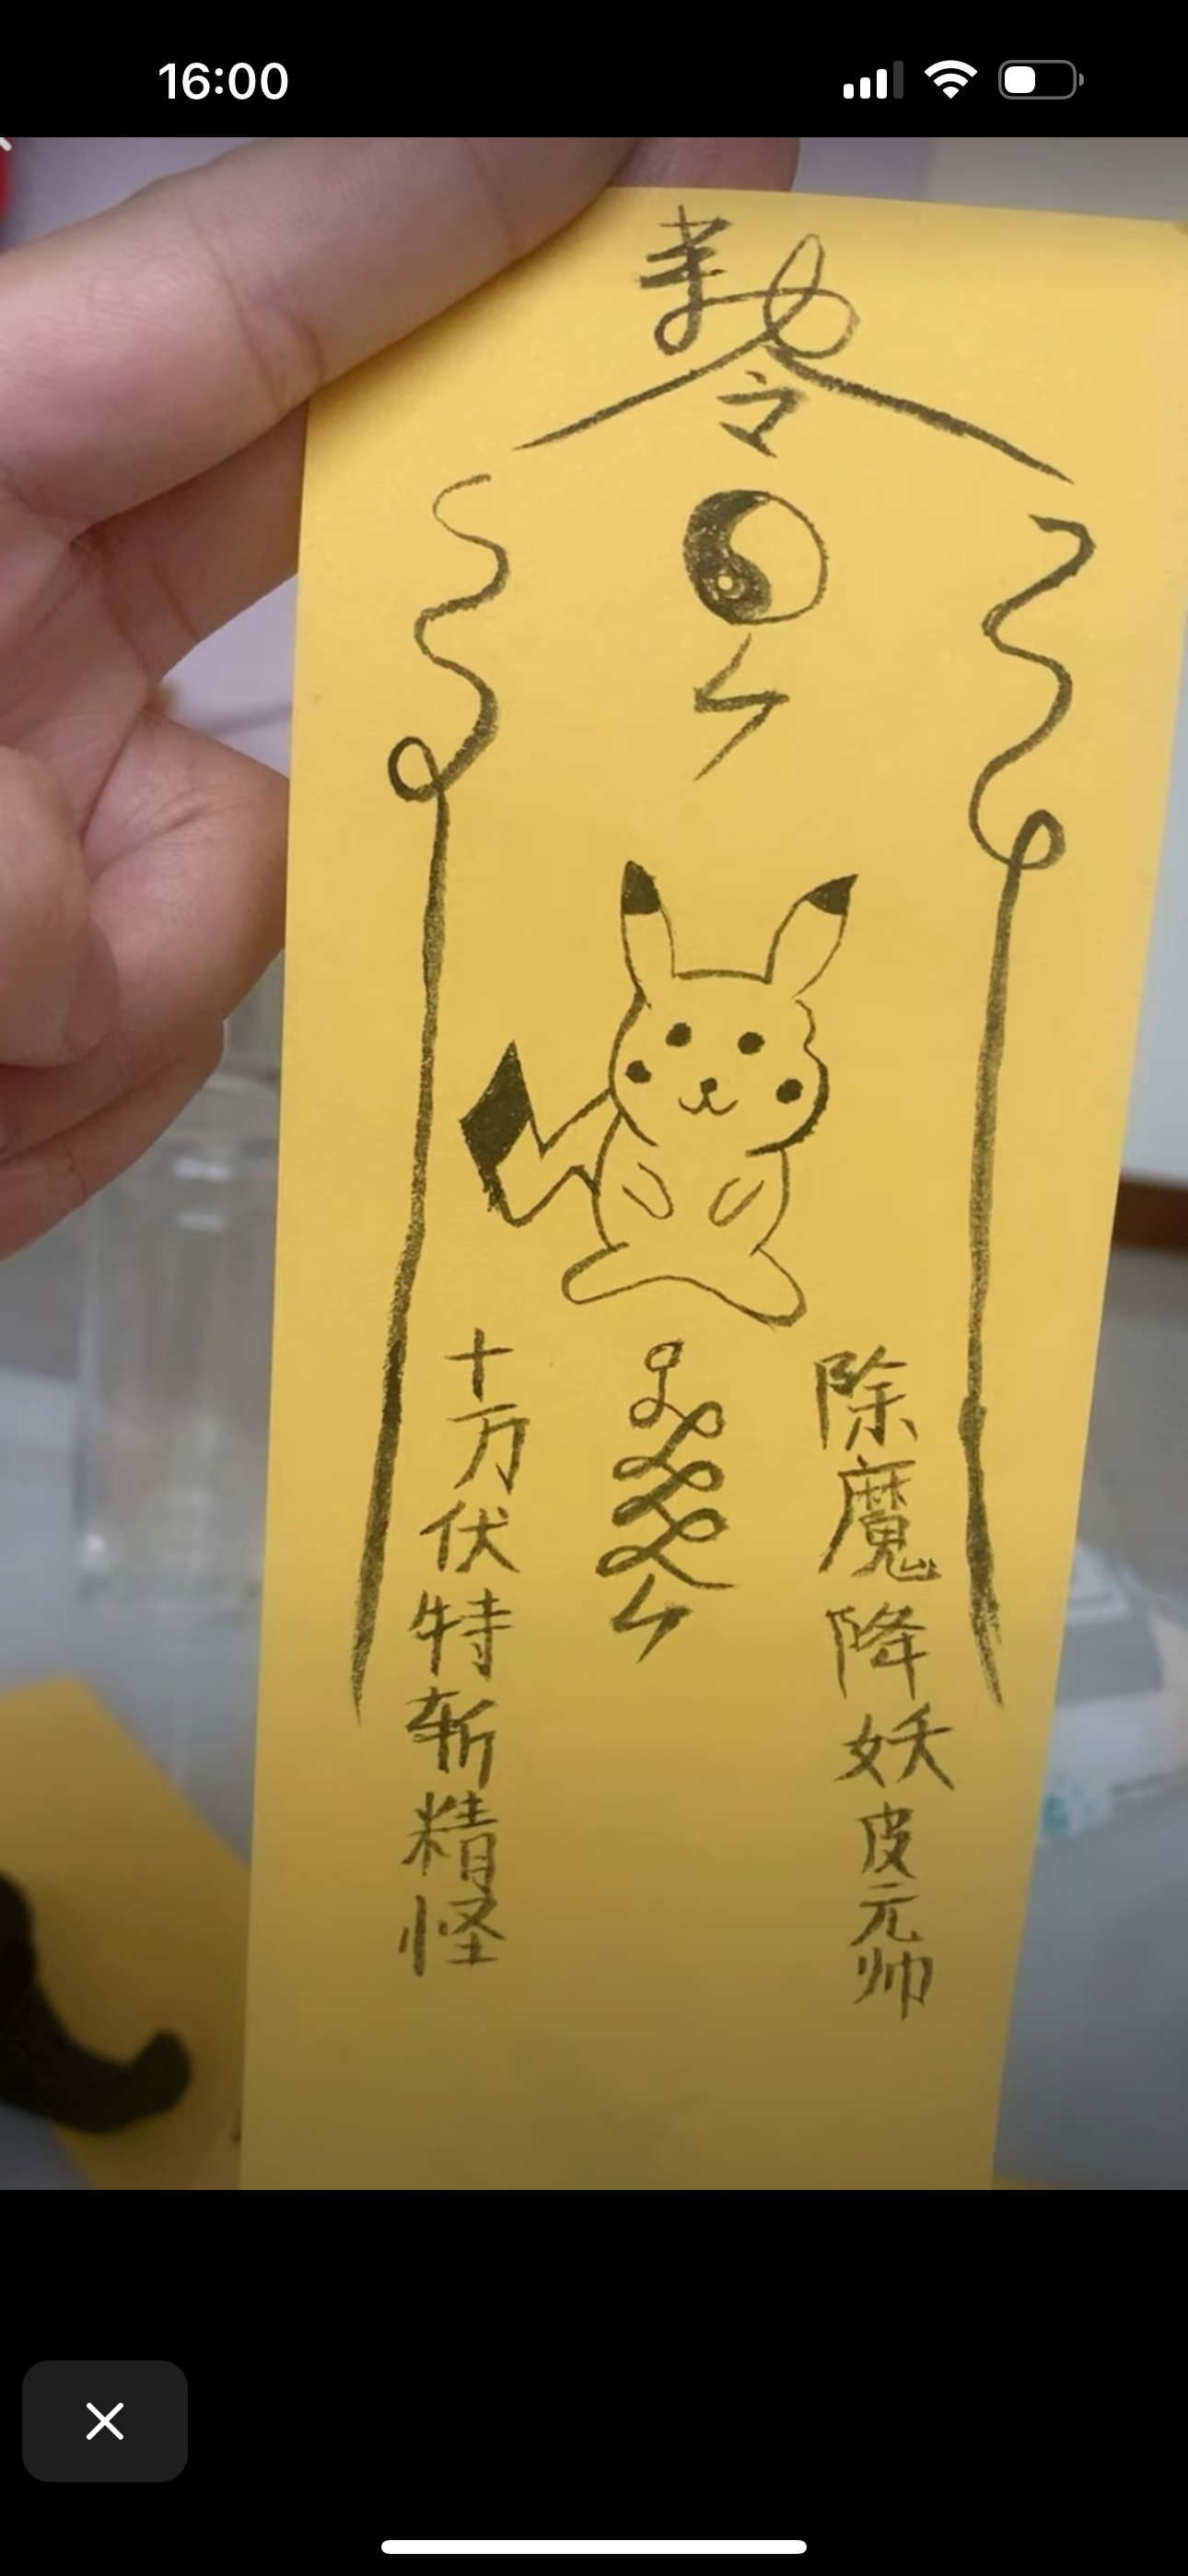 16:00
敕
令
除魔降妖皮元帅
十万伏特斩精怪